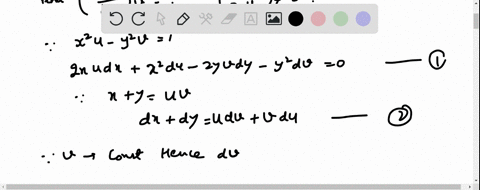 ∵ x²u - y²v = 1
2x u dx + x² du - 2y v dy - y² dv = 0 —— ①
∵ x + y = uv
dx + dy = u dv + v du —— ②
∵ v → Const Hence dv